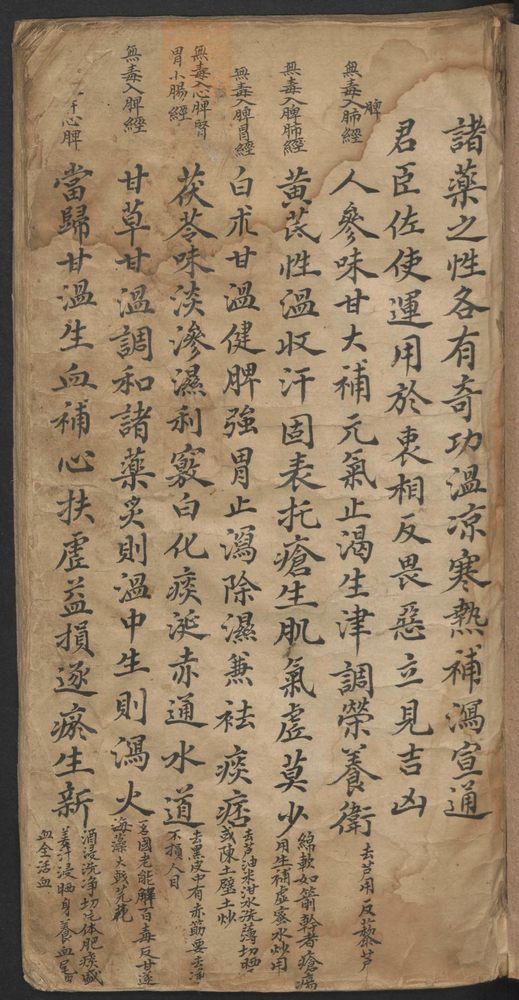 諸藥之性各有奇功溫凉寒熱補瀉宣通
君臣佐使運用於衷相反畏惡立見吉凶
無毒入肺經
脾
人參味甘大補元氣止渴生津調榮養衛
去芦用反藜芦
無毒入脾肺經
黃芪性溫收汗固表托瘡生肌氣虛莫少
綿軟如箭幹者瘡瘍
用生補虛蜜水炒用
無毒入脾胃經
白朮甘溫健脾強胃止瀉除濕兼祛痰痞
去芦油米泔水洗薄切晒
或陳土壁土炒
無毒入心脾腎
胃小腸經
茯苓味淡滲濕利竅白化痰涎赤通水道
去黑皮中有赤筋要去凈
不損人目
無毒入脾經
甘草甘溫調和諸藥炙則溫中生則瀉火
國老能解百毒反甘遂
海藻大戟芫花
肝心脾
當歸甘溫生血補心扶虛益損逐瘀生新
酒浸洗净切片体肥痰盛
姜汁浸晒身養血尾
血全活血